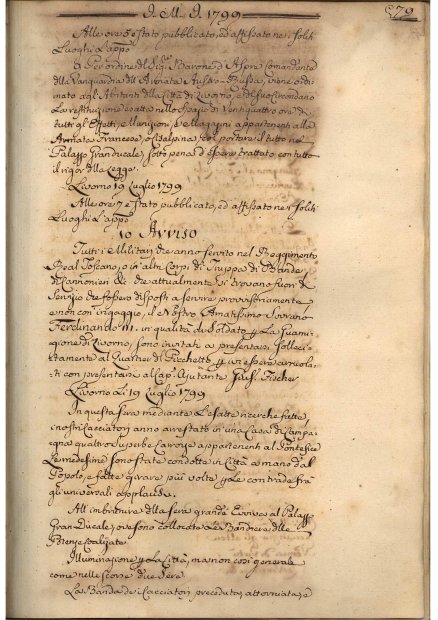 J. M. J. 1799
279
Alle ore 6 è stato pubblicato, ed affissato ne i soliti
Luoghi l'app.º
D'ordine del Sig.r Barone d'Aspre Comandante
della Vanguardia dell'Armata Austro-Russa, viene ordi-
mato agl'Abitanti della Città di Livorno, e del suo Circondario
la restituzione esatta nello spazio di Ventiquattro ore di
tutti gl'Effetti, Munizioni, e Magazzini appartenenti alle
Armate Francese, o Cisalpina, e di portare il tutto nel
Palazzo Granducale, sotto pena d'essere trattato con tutto
il rigor della Legge.
Livorno 19 Luglio 1799
Alle ore 7 è stato pubblicato, ed affissato ne i soliti
Luoghi l'app.º
10 Avviso
Tutti i Militari che anno servito nel Reggimento
Real Toscano, o in altri Corpi di Truppa di Bande
di Cannonieri &c. che attualmente si trovano fuor di
Servizio che fossero disposti a servire provvisoriamente
e non con ingaggio, il Nostro Amatissimo Sovrano
Ferdinando III. in qualità di Soldato p la Guarni-
gione di Livorno, sono invitati a presentarsi solleci-
tamente al Quartier di Fischetto p ivi essere arruola-
ti con presentarsi al Cap. Ajutante Fischer
Livorno li 19 Luglio 1799
In questa sera mediante le esatte ricerche fatte,
i nostri Cacciatori anno arrestato in una Casa di Campa-
gna quattro superbe Carrozze appartenenti al Pontefice
Le medesime sono state condotte in Città a mano dal
Popolo, e fatte girare più volte p le contrade fra
gli universali applausi.
All'imbrunire della sera grande Evviva al Palazzo
Gran Ducale, ove sono collocate le Bandiere delle
Potenze Coalizzate
Illuminazione p la Città, ma non così generale
come nelle scorse due sere
La Banda de i Cacciatori preceduta, attorniata, e